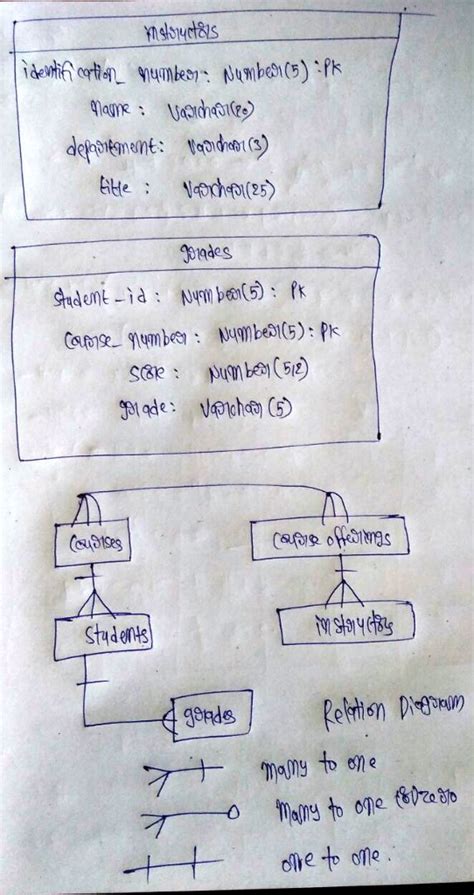 instructors
identification_ number: Number(5) :PK
name : Varchar(20)
department: Varchar(3)
title : Varchar(25)
grades
student_id : Number(5) : PK
Course_ number : Number(5) : PK
Score : Number(5,2)
grade : Varchar(5)
Courses
Course offerings
Students
instructors
grades
Relation Diagram
Many to one
Many to one (or zero
one to one.